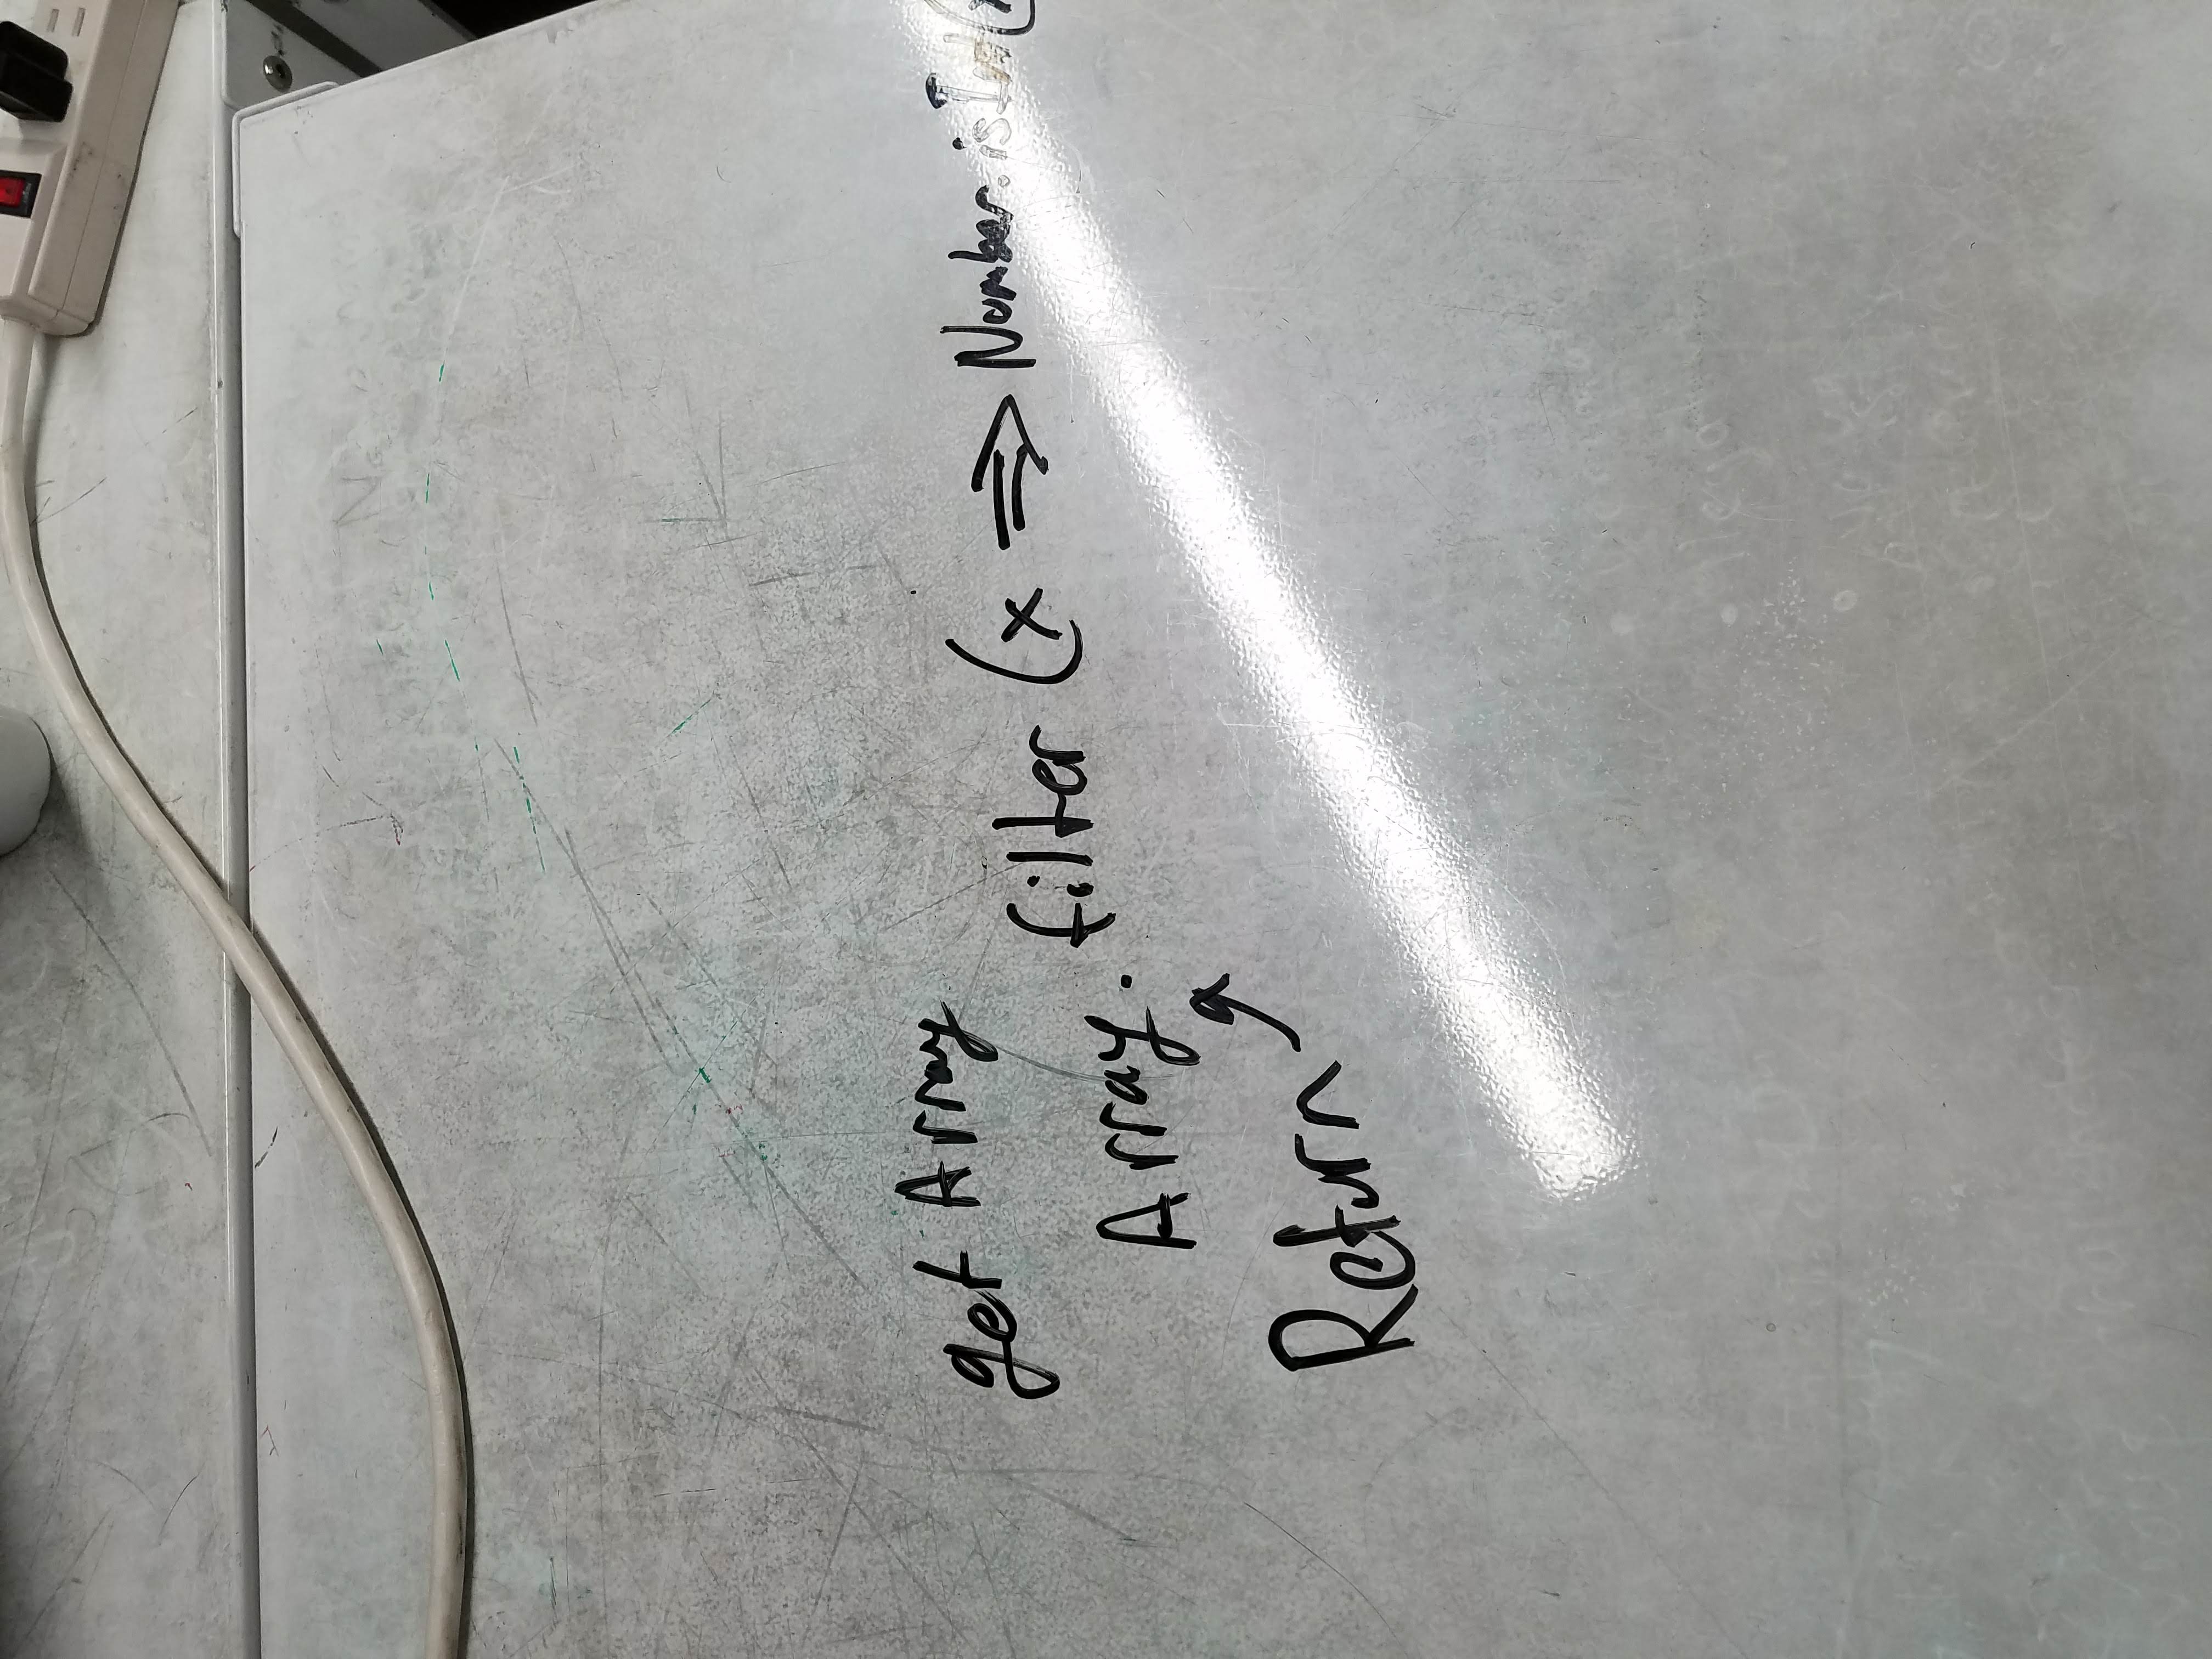 get Array
Array. filter (x => Number.isInt(x
Return